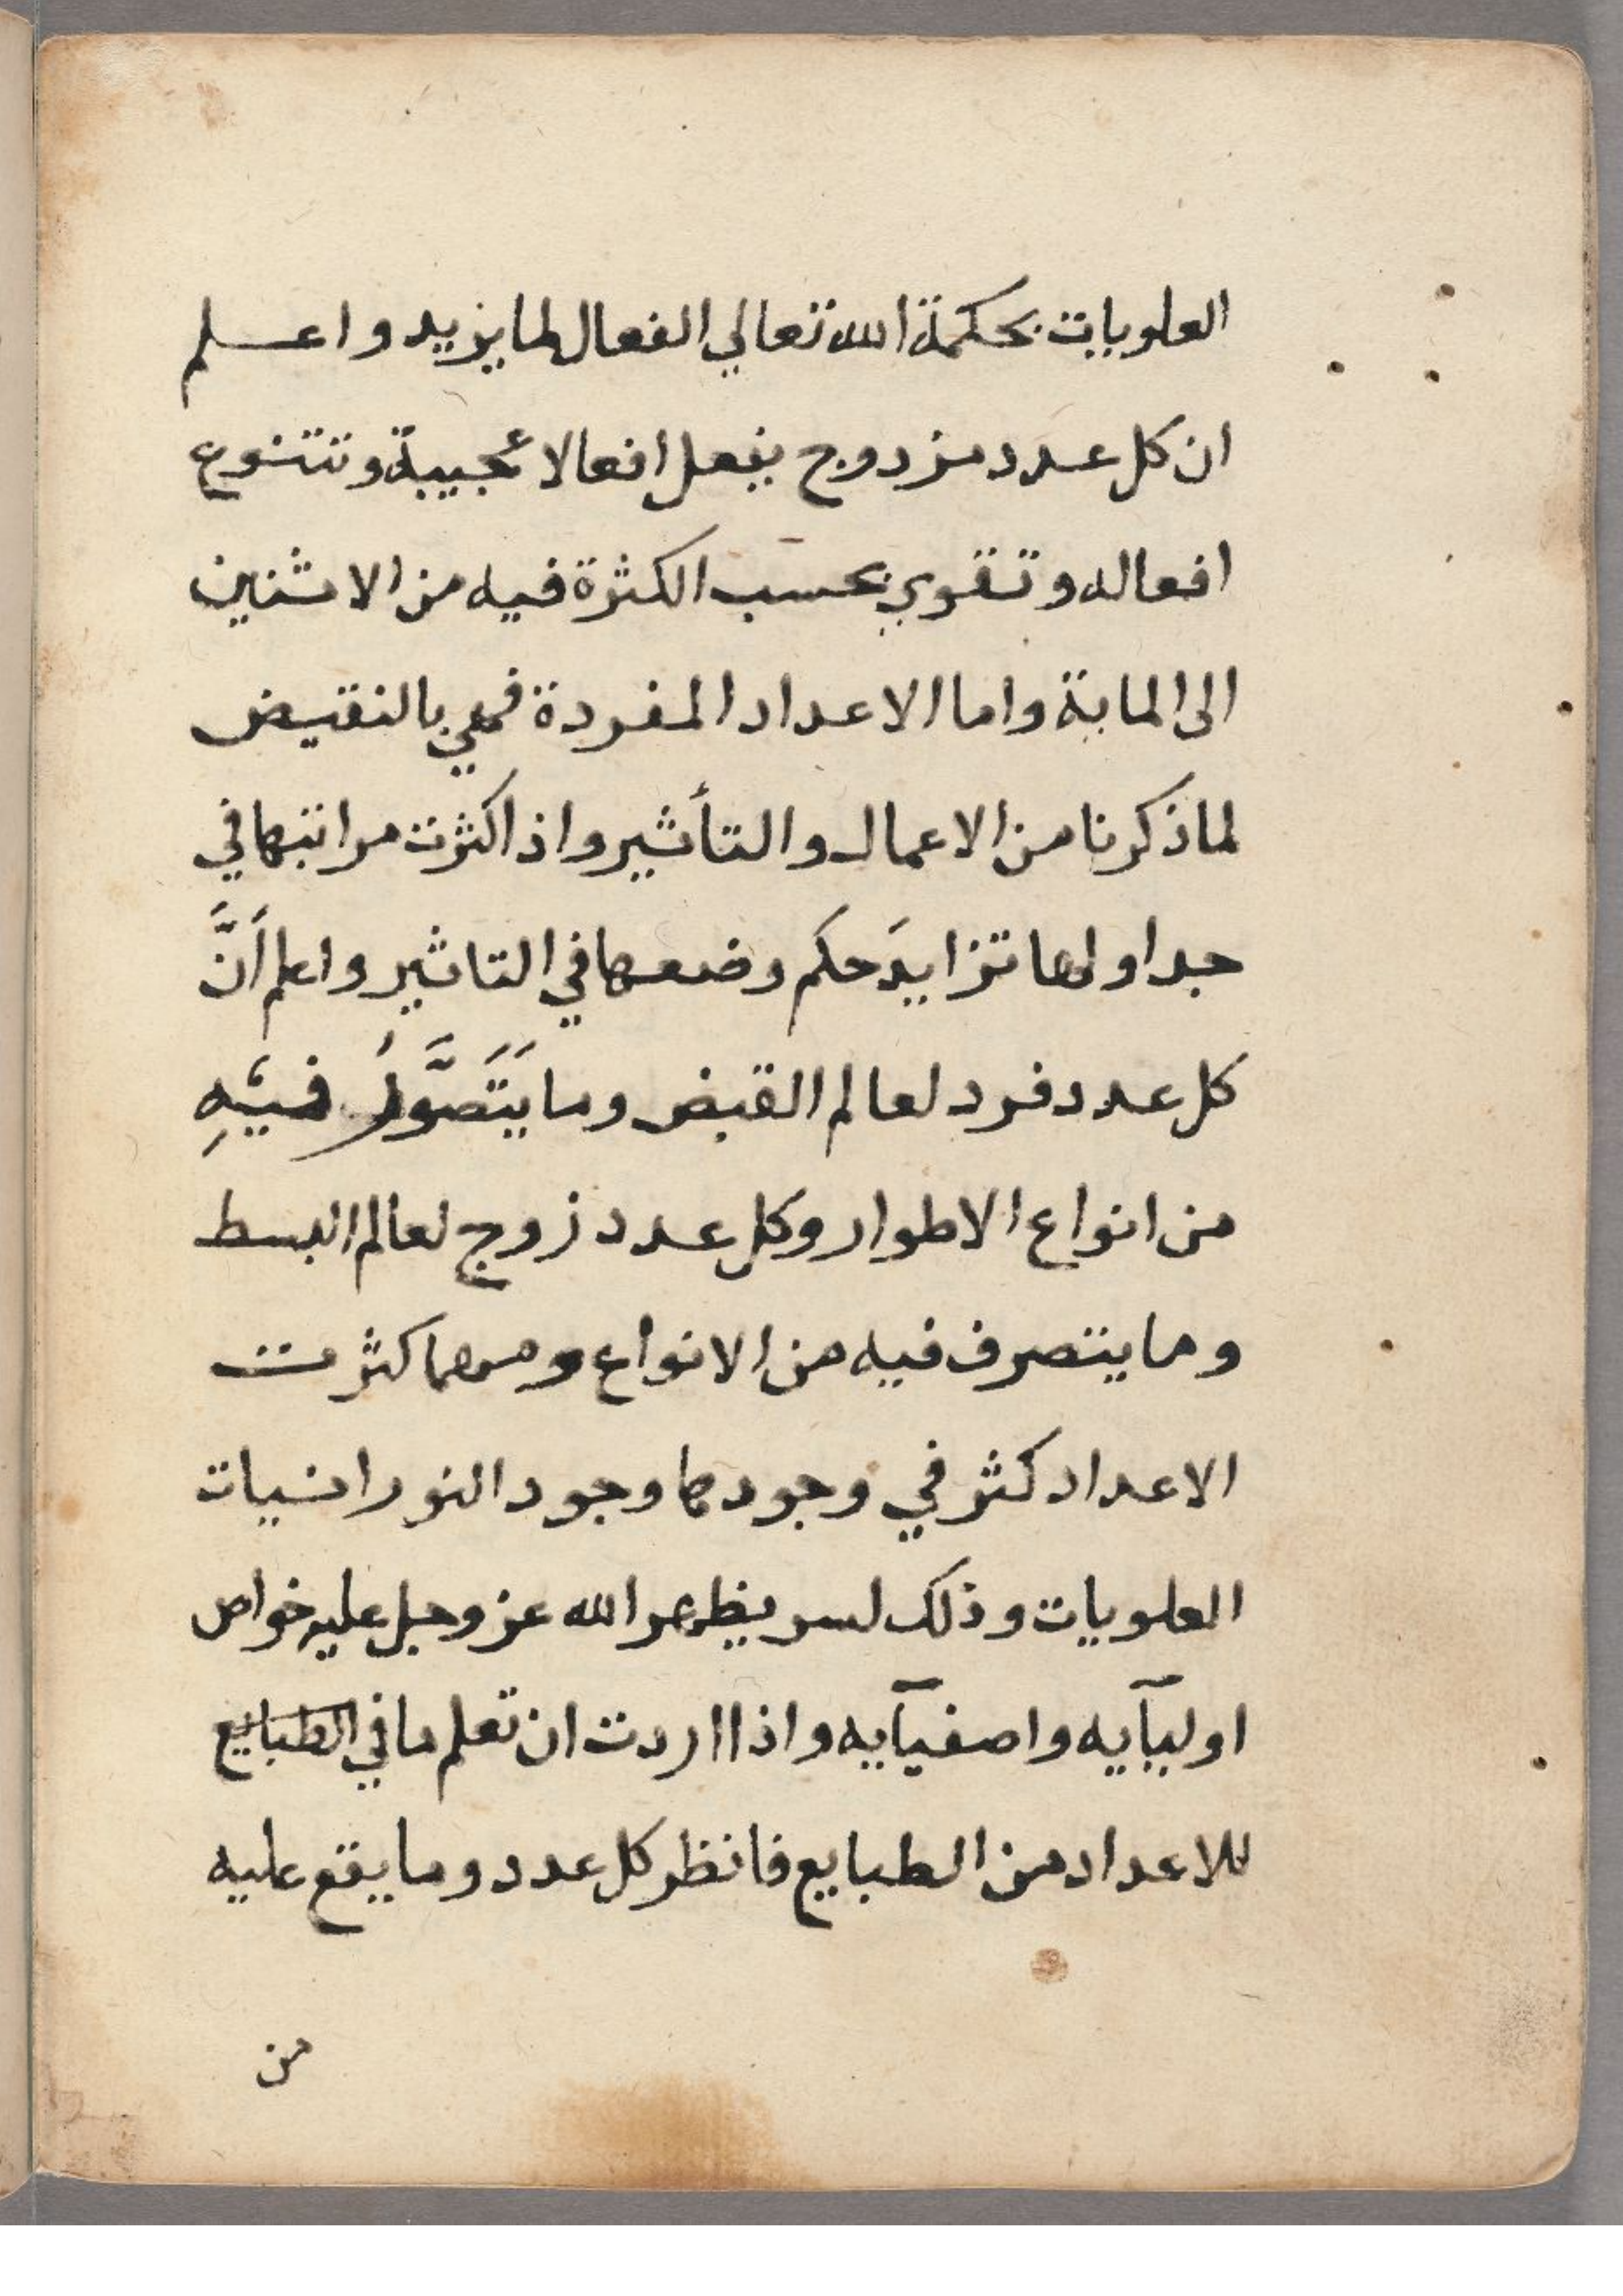 العلويات بحكمة الله تعالي الفعال لما يزيد واعلم
ان كل عدد مزدوج يفعل افعالا عجيبة وتتنوع
افعاله وتقوي بحسب الكثرة فيه من الاثنين
الى الماية واما الاعداد المفردة فهي بالنقيض
لما ذكرنا من الاعمال والتأثير واذا كثرت مراتبها في
جداولها تزايدَ حكم وضعها في التاثير واعلم أَنَّ
كل عدد فرد لعالم القبض وما يَتَصَّورُ فيهِ
من انواع الاطوار وكل عدد زوج لعالم البسط
وما يتصرف فيه من الانواع ومهما كثرت
الاعداد كثر في وجودها وجود النورانيات
العلويات وذلك لسر يظهر الله عز وجل عليه خواص
اوليآيه واصفيآيه واذا اردت ان تعلم ما في الطبايع
للاعداد من الطبايع فانظر كل عدد وما يقع عليه
من